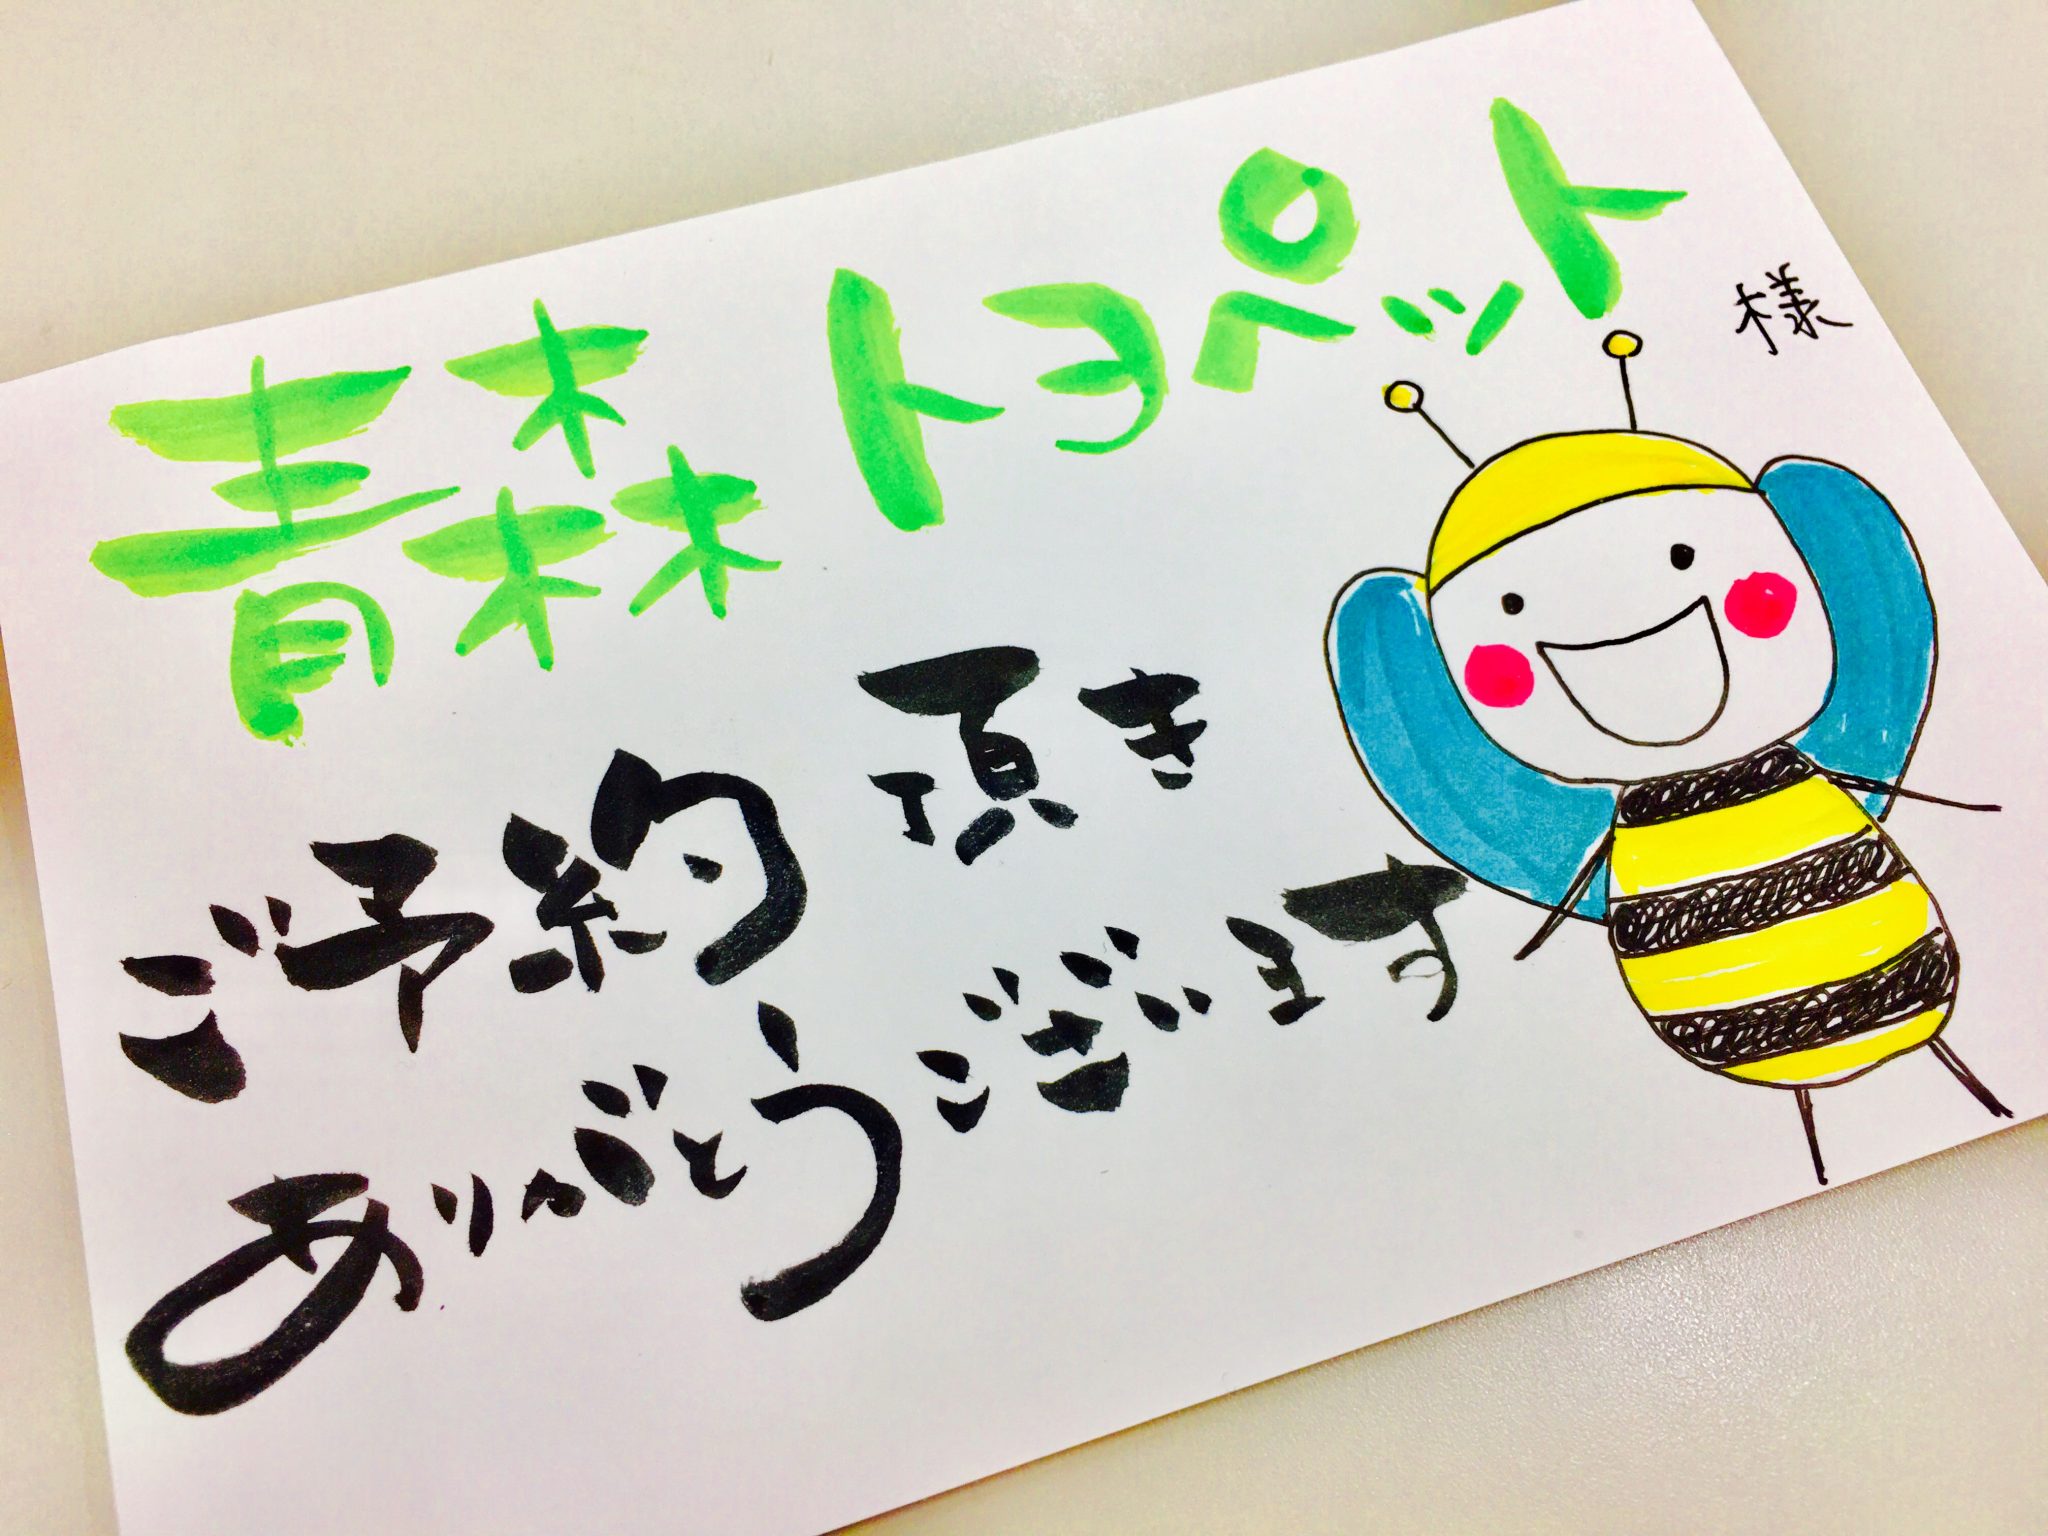 青森トヨペット様
ご予約頂き
ありがとうございます